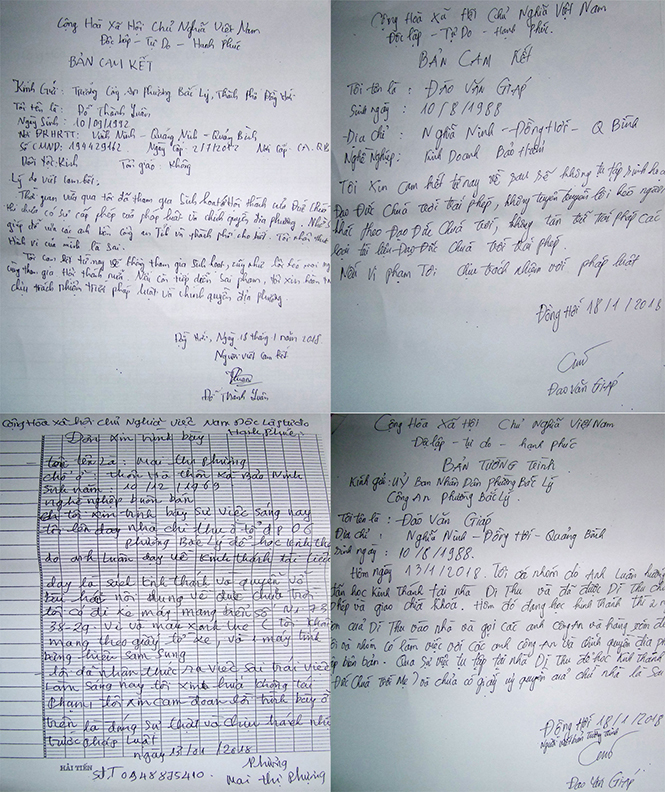 Cộng Hoà Xã Hội Chủ Nghĩa Việt Nam
Độc lập - Tự Do - Hạnh Phúc
BẢN CAM KẾT
Kính Gửi: Trưởng Công An Phường Bắc Lý, Thành Phố Đồng Hới.
Tôi tên là: Đỗ Thành Luân
Ngày Sinh: 10/09/1992
Nơi ĐKHKTT: Vĩnh Ninh - Quảng Ninh - Quảng Bình
Số CMND: 194429162. Ngày Cấp: 2/7/2012 Nơi Cấp: CA. QB
Dân Tộc: Kinh Tôn giáo: Không
Lý do viết cam kết:
Thời gian vừa qua tôi đã tham gia Sinh hoạt Hội thánh của Đức Chúa
có sự cấp phép của pháp luật và chính quyền địa phương. Nhờ
giúp đỡ của các anh bên công an Tỉnh và thành phố cho biết. Tôi nhận thức
Hành vi của mình là sai.
Tôi Cam kết từ nay về không tham gia Sinh hoạt, cũng như lôi kéo mọi ng
cùng tham gia Hội thánh nữa. Nếu còn tiếp diễn sai phạm, tôi xin hoàn
chịu trách nhiệm trước pháp luật và chính quyền địa phương.
Đồng Hới, Ngày 18 tháng 1 năm 2018.
Người viết cam kết
Đỗ Thành Luân
Cộng Hoà Xã Hội Chủ Nghĩa Việt Nam
Độc lập - Tự Do - Hạnh Phúc.
BẢN CAM KẾT
Tôi tên là: ĐÀO VĂN GIÁP
Sinh ngày: 10/8/1988
Địa chỉ: Nghĩa Ninh - Đồng Hới - Q Bình
Nghề Nghiệp: Kinh Doanh Bảo Hiểm
Tôi Xin Cam kết từ nay về sau sẽ không tụ tập sinh hoạ
Đạo Đức Chúa trời trái phép, không tuyên truyền lôi kéo người
khác theo Đạo Đức Chúa Trời, không tán trữ trái phép các
loại tài liệu Đạo Đức Chúa Trời trái phép.
Nếu Vi phạm Tôi chịu trách nhiệm với pháp luật
Đồng Hới 18/1/2018
Đào Văn Giáp
Cộng Hòa Xã hội Chủ Nghĩa Việt Nam Độc Lập tự do
Hạnh Phúc
Đơn xin trình bày
tôi tên Là: Mai Thị Phường
chỗ ở thôn Hà thôn xã Bảo Ninh
Sinh năm 10/12/1969
nghề nghiệp buôn bán
tôi xin trình bày sự việc sáng nay
tôi lên đây nhà chị Thu ở tổ d p 06
phường Bắc Lý để học kinh thá
do anh Luân dạy về Kinh thánh tài liệu
dạy là sách kinh thánh và quyển vở
nội dung về đức chúa trời
tôi có đi xe máy mang biển số N1 73
38-29 Ve và màu xanh lục (tôi không
mang theo giấy tờ xe, và 1 máy tính
bảng hiệu sam sung
tôi đã nhận thức ra việc sai trái việc
làm sáng nay tôi xin hứa không tái
phạm, tôi xin cam đoan lời trình bày ở
trên là đúng sự thật và chịu trách nhi
trước pháp luật
ngày 13/01/2018
HẢI TIẾN
SĐT 0948835410. Phường
Mai thị Phường
Cộng Hoà XÃ HỘI Chủ Nghĩa Việt Nam
Độc lập - tự do - hạnh phúc
BẢN TƯỜNG TRÌNH
Kính gửi: Uỷ Ban Nhân Dân Phường Bắc Lý
Công An Phường Bắc Lý.
Tôi tên là: Đào Văn Giáp
Địa chỉ: Nghĩa Ninh - Đồng Hới - Quảng Bình
Sinh ngày: 10/8/1988.
Hôm ngày 13/1/2018. Tôi có nhóm do Anh Luân hướng
dẫn học Kinh Thánh tại nhà Dì Thu và đã được Dì Thu cho
phép và giao chìa khoá. Hôm đó đang học kinh thánh thì 2
con của Dì Thu vào nhà và gọi các anh công An và hàng xóm đế
Tôi và nhóm có làm việc với các anh công An và chính quyền địa ph
lập biên bản. Qua sự việc tụ tập tại nhà Dì Thu để học kinh thánh
Đức Chúa trời Mẹ) và chưa có giấy uỷ quyền của chủ nhà là Sai
Đồng Hới 18/1/2018
Người viết bản tường trình
Đào Văn Giáp